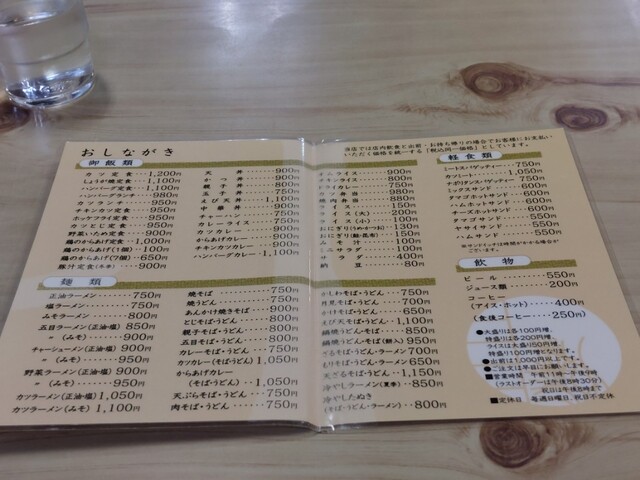 おしながき
御飯類
カツ定食・・・・1,200円
しょうが焼定食・・・1,100円
ハンバーグ定食・・・1,100円
ハンバーグランチ・・・・980円
カツランチ・・・・・950円
チキンカツ定食・・・・900円
ホッケフライ定食・・・・950円
カツとじ定食・・・・・950円
野菜いため定食・・・・900円
鶏のからあげ定食・・・1,000円
鶏のからあげ(1個)・・・100円
鶏のからあげ(7個)・・・650円
豚汁定食・・・900円
天丼・・・・・900円
かつ丼・・・・・900円
親子丼・・・・・800円
玉子丼・・・・・750円
えび天丼・・・・1,100円
中華丼・・・・・900円
チャーハン・・・・・750円
カレーライス・・・・750円
カツカレー・・・・・900円
からあげカレー・・・・900円
チキンカツカレー・・・900円
ハンバーグカレー・・・900円
麺類
正油ラーメン・・・・・750円
塩ラーメン・・・・・・750円
みそラーメン・・・・・800円
五目ラーメン(正油・塩)850円
〃(みそ)・・・・・900円
チャーシューメン(正油・塩)900円
〃(みそ)・・・・950円
野菜ラーメン(正油・塩)900円
〃(みそ)・・・・・950円
カツラーメン(正油・塩)1,050円
カツラーメン(みそ)1,100円
焼そば・・・・・・750円
焼うどん・・・・・750円
あんかけ焼きそば・・・900円
とじそば・うどん・・・800円
親子そば・うどん・・・800円
五目そば・うどん・・・800円
カレーそば・うどん・・750円
カツカレー(そば・うどん)1,050円
からあげカレー
(そば・うどん)・・1,050円
天ぷらそば・うどん・・・750円
肉そば・うどん・・・・750円
当店では店内飲食と出前・お持ち帰りの場合でお客様にお支払い
いただく価格を統一する「税込同一価格」としています。
オムライス・・・・・900円
チキンライス・・・・・800円
ドライカレー・・・・・750円
カツ弁当・・・・・980円
焼肉弁当・・・・・880円
ライス・・・・・150円
ライス(大)・・・・200円
ライス(小)・・・・100円
おにぎり(うめかつお)130円
おにぎり(鮭・昆布)・・150円
みそ汁・・・・・100円
ミニサラダ・・・・・100円
サラダ・・・・・400円
納豆・・・・・80円
かしわそば・うどん・・・750円
月見そば・うどん・・・700円
かけそば・うどん・・・650円
えび天そば・うどん・・1,100円
鍋焼うどん・・・・・850円
鍋焼うどん・そば(餅入)950円
ざるそば・うどん・ラーメン700円
もりそば・うどん・ラーメン650円
天ざるそば・・・・・1,150円
冷やしラーメン(夏季)・・850円
冷やしたぬき
(そば・うどん・ラーメン)・・800円
軽食類
ミートスパゲッティー・・・750円
カツミート・・・・・1,050円
ナポリタンスパゲッティー・・750円
ミックスサンド・・・・550円
タマゴホットサンド・・・550円
ハムホットサンド・・・550円
チーズホットサンド・・・550円
タマゴサンド・・・・・550円
ヤサイサンド・・・・・550円
ハムサンド・・・・・550円
※サンドイッチは時間がかかる場合が
ございます。
飲物
ビール・・・・・550円
ジュース類・・・・・200円
コーヒー
(アイス・ホット)・・・400円
(食後コーヒー・・・250円)
●大盛りは各100円増、
特盛りは各200円増。
ライスは大盛り50円増、
特盛り100円増となります。
●出前は1,000円以上です。
●ご注文は早目にお願いします。
■営業時間 午前11時〜午後9時
(ラストオーダーは午後8時30分)
祝日は午後8時まで
■定休日 毎週日曜日、祝日不定休